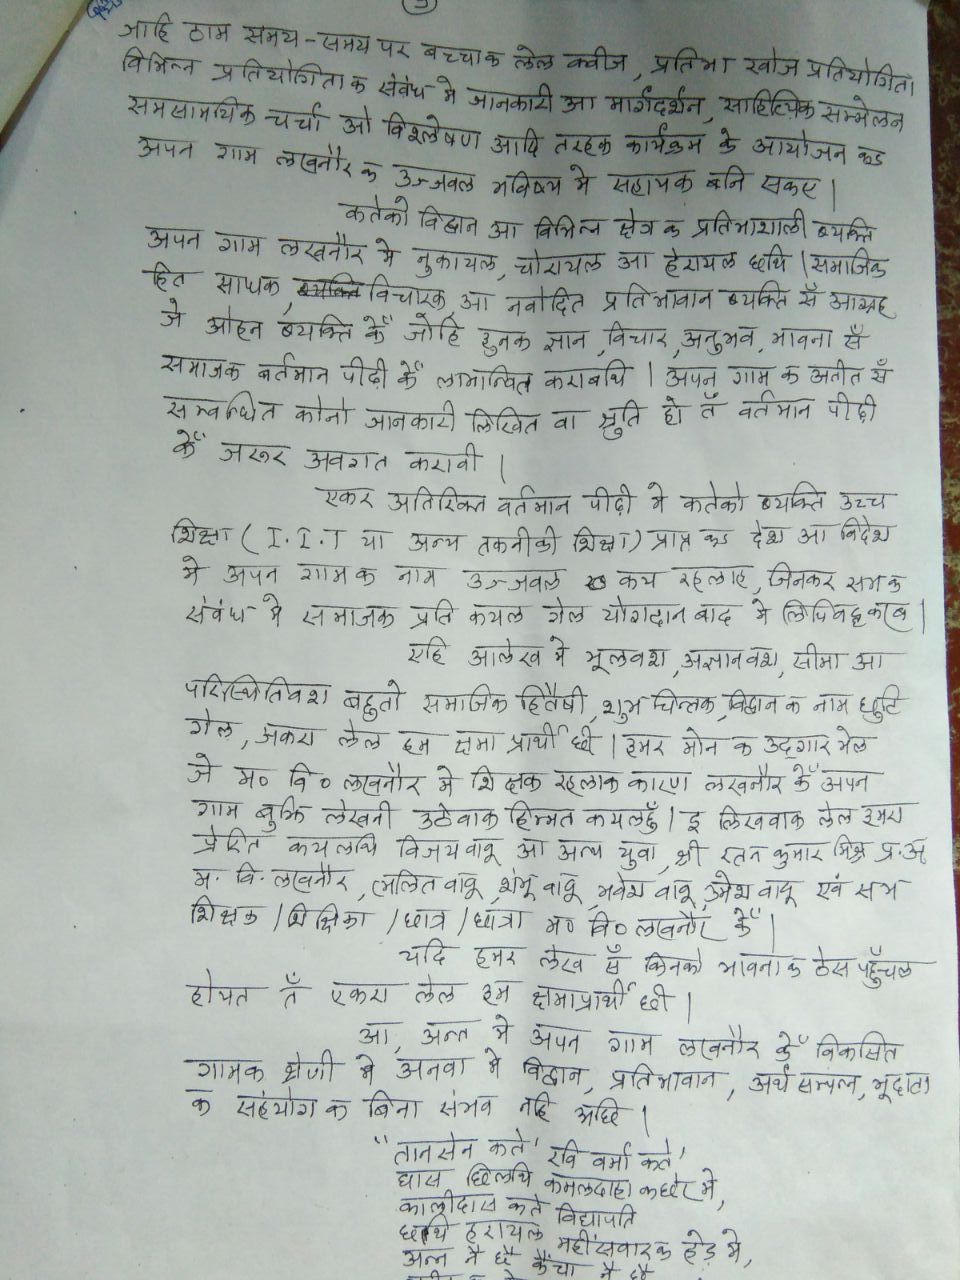 जाहि ठाम समय-समय पर बच्चाक लेल क्वीज, प्रतिभा खोज प्रतियोगिता
विभिन्न प्रतियोगिता क संबंध मे जानकारी आ मार्गदर्शन, साहित्यिक सम्मेलन
समसामयिक चर्चा ओ विश्लेषण आदि तरहक कार्यक्रम के आयोजन कऽ
अपन गाम लखनौर क उज्जवल भविष्य मे सहायक बनि सकए।
कतेको विद्वान आ विभिन्न क्षेत्र क प्रतिभाशाली ब्यक्ति
अपन गाम लखनौर मे नुकायल, चोरायल आ हेरायल छथि। समाजिक
हित साधक, विचारक आ नवोदित प्रतिभावान ब्यक्ति सँ आग्रह
जे ओहन ब्यक्ति केँ जोहि हुनक ज्ञान, विचार, अनुभव, भावना सँ
समाजक बर्तमान पीढी केँ लाभान्वित कराबथि। अपन गाम क अतीत सँ
सम्बन्धित कोनो जानकारी लिखित वा श्रुति हो तँ वर्तमान पीढी
केँ जरूर अवगत करावी।
एकर अतिरिक्त वर्तमान पीढी मे कतेको ब्यक्ति उच्च
शिक्षा (I.I.T या अन्य तकनीकी शिक्षा) प्राप्त कऽ देश आ विदेश
मे अपन गाम क नाम उज्जवल कय रहलाह, जिनकर सभ क
संबंध मे समाजक प्रति कयल गेल योगदान बाद मे लिपिबद्ध करब।
एहि आलेख मे भूलवश, अज्ञानवश, सीमा आ
परिस्थितिवश बहुतो समाजिक हितैषी, शुभ चिन्तक, विद्वान क नाम छुटि
गेल, जकरा लेल हम क्षमा प्रार्थी छी। हमर मोन क उद्गार भेल
जे म० वि० लखनौर मे शिक्षक रहलाक कारण लखनौर केँ अपन
गाम बुझि लेखनी उठेवाक हिम्मत कयलहुँ। इ लिखवाक लेल हमरा
प्रेरित कयलथि विजयवाबू आ अन्य युवा, श्री रतन कुमार मिश्र प्र.अ.
म. वि. लखनौर, ललित वाबू, शंभू वाबू, भवेश वाबू, उमेश वाबू एवं सभ
शिक्षक / शिक्षिका / छात्र / छात्रा म० वि० लखनौर केँ।
यदि हमर लेख सँ किनको भावना क ठेस पहुँचल
होयत तँ एकरा लेल हम क्षमाप्रार्थी छी।
आ, अन्त मे अपन गाम लखनौर केँ विकसित
गामक श्रेणी मे अनवा मे विद्वान, प्रतिभावान, अर्थ सम्पन्न, भूदाता
क सहयोग क बिना संभव नहि अछि।
"तानसेन कते' रवि वर्मा कते'
घास छिलथि कमलदाहा कछेर मे,
कालीदास कते विद्यापति
छथि हरायल महींसवारक हेड़ मे,
अन्न नै छै कैंचा नै छै